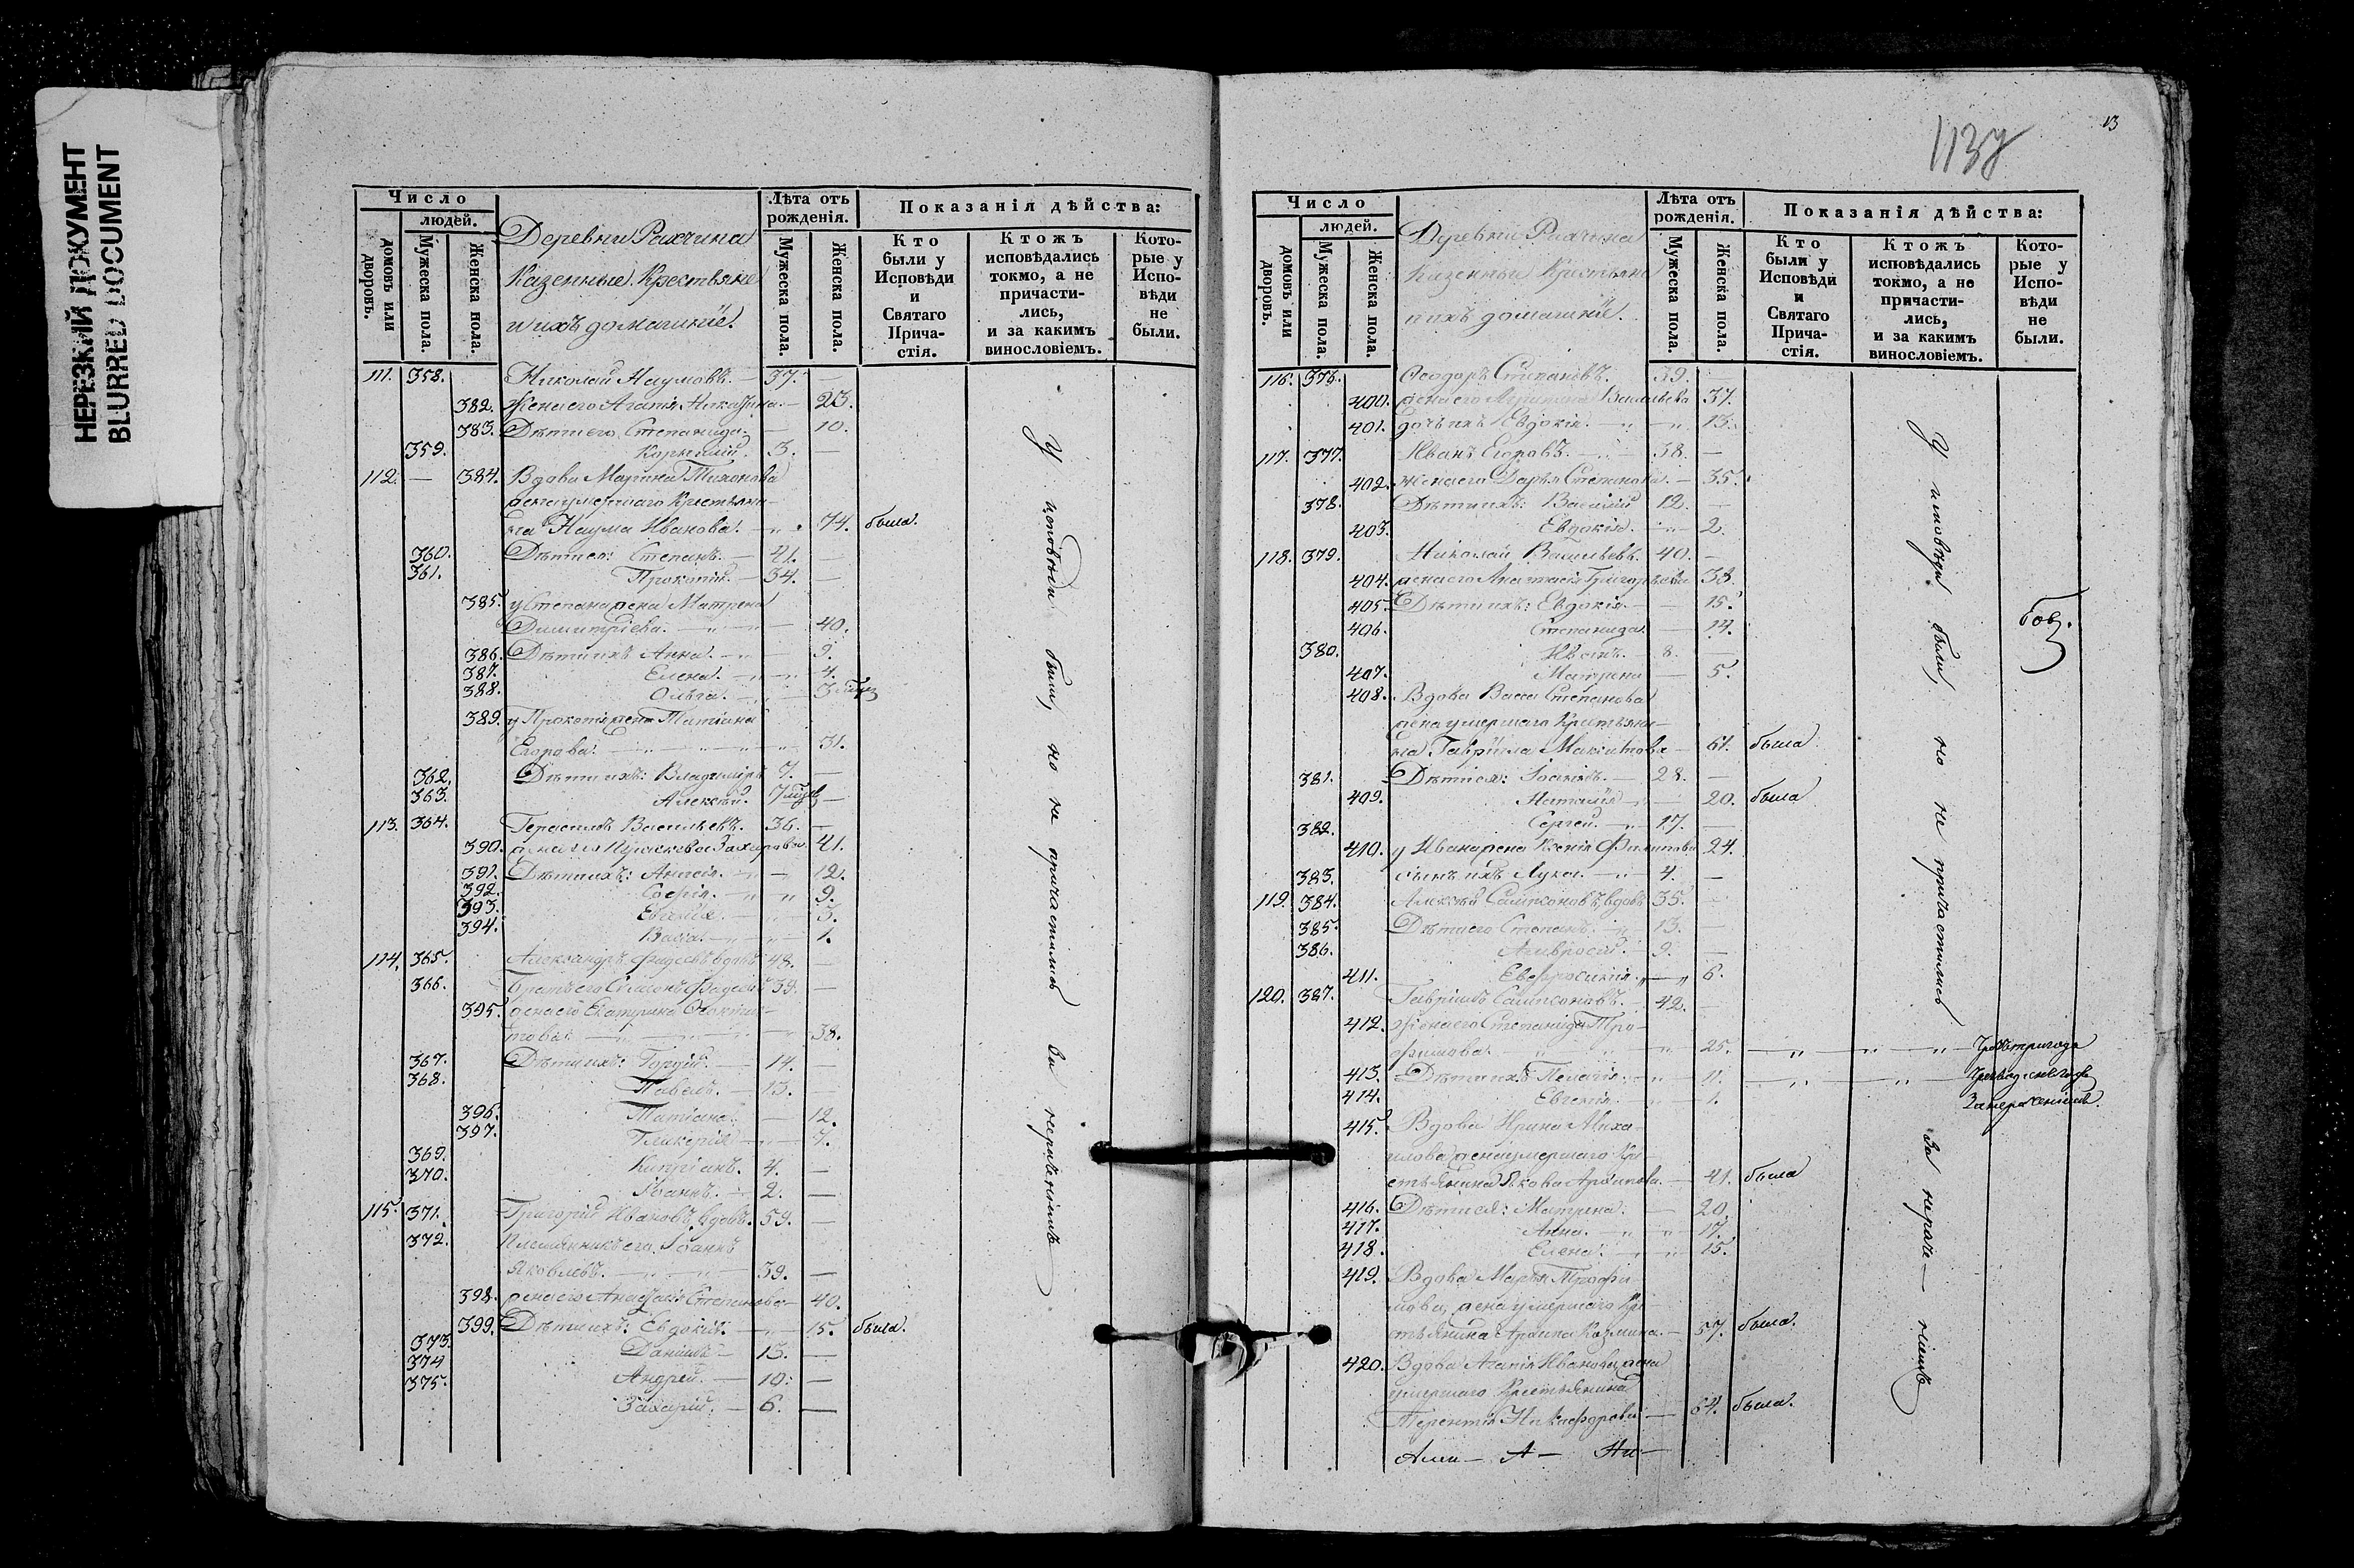 НЕРЕЗКИЙ ДОКУМЕНТ
BLURRED DOCUMENT
Число
людей.
домовъ или дворовъ.
Мужеска пола.
Женска пола.
Деревни
Казенные Крестьяне
и ихъ домашніе.
Лѣта отъ рожденія.
Мужеска пола.
Женска пола.
Показанія дѣйства:
Кто были у Исповѣди и Святаго Причастія.
Ктожъ исповѣдались токмо, а не причастились, и за какимъ винословіемъ.
Которые у Исповѣди не были.
111. 358. Николай Наумовъ. — 37. —
382. Жена его Агапія — 23.
383. Дѣти его: Степанида. — 10.
359. 3. —
112. — 384. Вдова Марина Тихонова
жена умершаго крестьяни-
на Наума Иванова. — 74. была.
360. Дѣти ея: Степанъ. — 41. —
361. Прокопій. — 34. —
385. у Степана жена Матрена
Димитріева. — 40.
386. Дѣти ихъ Анна. — 9.
387. Елена. — 4.
388. Ольга. — 3
389. у Прокопія жена Татіана
Егорова. — 31.
362. Дѣти ихъ: Владиміръ 7. —
363. Алексѣй. 7
113. 364. Герасимъ Васильевъ. 36. —
390. Захарова 41.
391. Дѣти ихъ: — 12.
392. Софія. — 9.
393. Евгенія. — 3.
394. Васса. — 1.
114. 365. Александръ Фадѣевъ вдовъ 48. —
366. Братъ его Симеонъ Фадѣевъ 39. —
395. жена его Екатерина
— 38.
367. Дѣти ихъ: — 14. —
368. Павелъ. — 13. —
396. Татіана. — 12.
397. Гликерія — 7.
369. Кипріанъ. 4. —
370. Іоаннъ. — 2. —
115. 371. Григорій Ивановъ, вдовъ. 59. —
372. Племянникъ его Іоаннъ
Яковлевъ. — 39. —
398. жена его Анастасія Степанова — 40.
399. Дѣти ихъ: Евдокія. — 15. была.
373. Даніилъ — 13. —
374 Андрей. — 10. —
375. Захарій. — 6. —
У исповѣди были, но не причастились за нераченіемъ
113
13
Число
людей.
домовъ или дворовъ.
Мужеска пола.
Женска пола.
Деревни
Казенные Крестьяне
и ихъ домашніе.
Лѣта отъ рожденія.
Мужеска пола.
Женска пола.
Показанія дѣйства:
Кто были у Исповѣди и Святаго Причастія.
Ктожъ исповѣдались токмо, а не причастились, и за какимъ винословіемъ.
Которые у Исповѣди не были.
116. 376. Ѳеодоръ Степановъ. 39. —
400. жена его Васильева 37.
401. дочь ихъ Евдокія. — 13.
117. 377. Иванъ Егоровъ. — 38. —
402. жена его Дарья Степанова. — 35.
378. Дѣти ихъ: Василій 12. —
403. Евдокія. — 2.
118. 379. Николай Васильевъ. 40. —
404. жена его Анастасія Григорьева 33.
405. Дѣти ихъ: Евдокія. — 15.
406. Степанида. — 14.
380. Иванъ. — 8. —
407. Матрена — 5.
408. Вдова Васса Степанова
жена умершаго крестьяни-
на Гавріила Максимова — 61. была
381. Дѣти ея: — 28. —
409. Наталія — 20. была
382. Сергей. — 17. —
410. у Ивана жена Ксенія Филипова 24.
383. сынъ ихъ Лука. — 4. —
119. 384. Алексѣй Сампсоновъ, вдовъ 35. —
385. Дѣти его Степанъ. — 13. —
386. Амвросій. — 9. —
411. Евфросинія. — 6.
120. 387. Гавріилъ Сампсоновъ. — 42. —
412. Жена его Степанида Тро-
фимова. — 25.
413. Дѣти ихъ Пелагія. — 11.
414. Евгенія. — 1. За нераченіемъ.
415. Вдова Ирина Миха-
илова жена умершаго кре-
стьянина Якова Архипова. — 41. была
416. Дѣти ея: Матрена. — 20.
417. Анна. — 17.
418. Елена. — 15.
419. Вдова Марья Трофи-
мова, жена умершаго кре-
стьянина Архипа Козмина. — 57. была.
420. Вдова Агапія Иванова, жена
умершаго крестьянина
Терентія Никифорова — 64. была.
У исповѣди были, но не причастились за нераче-ніемъ